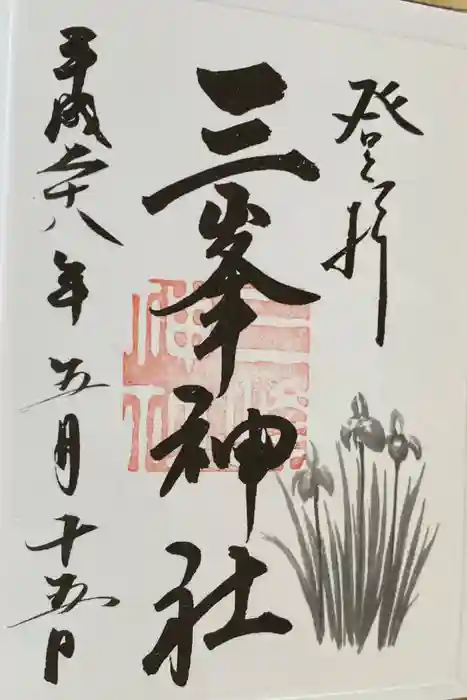 登拝
三峯神社
平成二十八年五月十五日